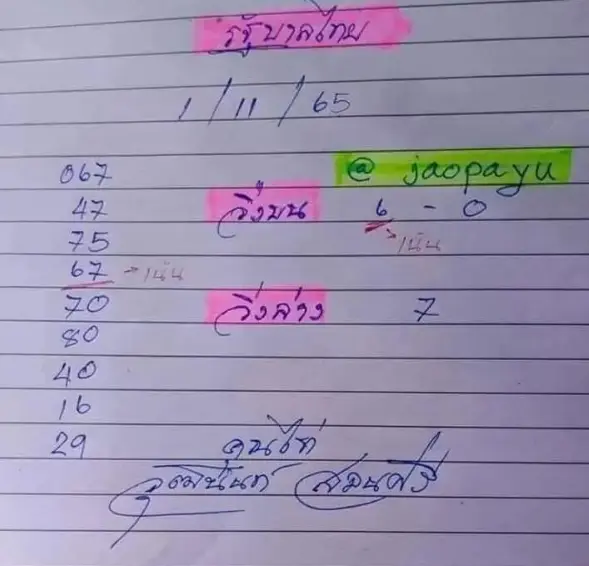 รัฐบาลไทย
1 / 11 / 65
@ jaopayu
067
47 วิ่งบน 6 - 0
75 เน้น
67 → เน้น
70 วิ่งล่าง 7
80
40
16
29
สมนศรี